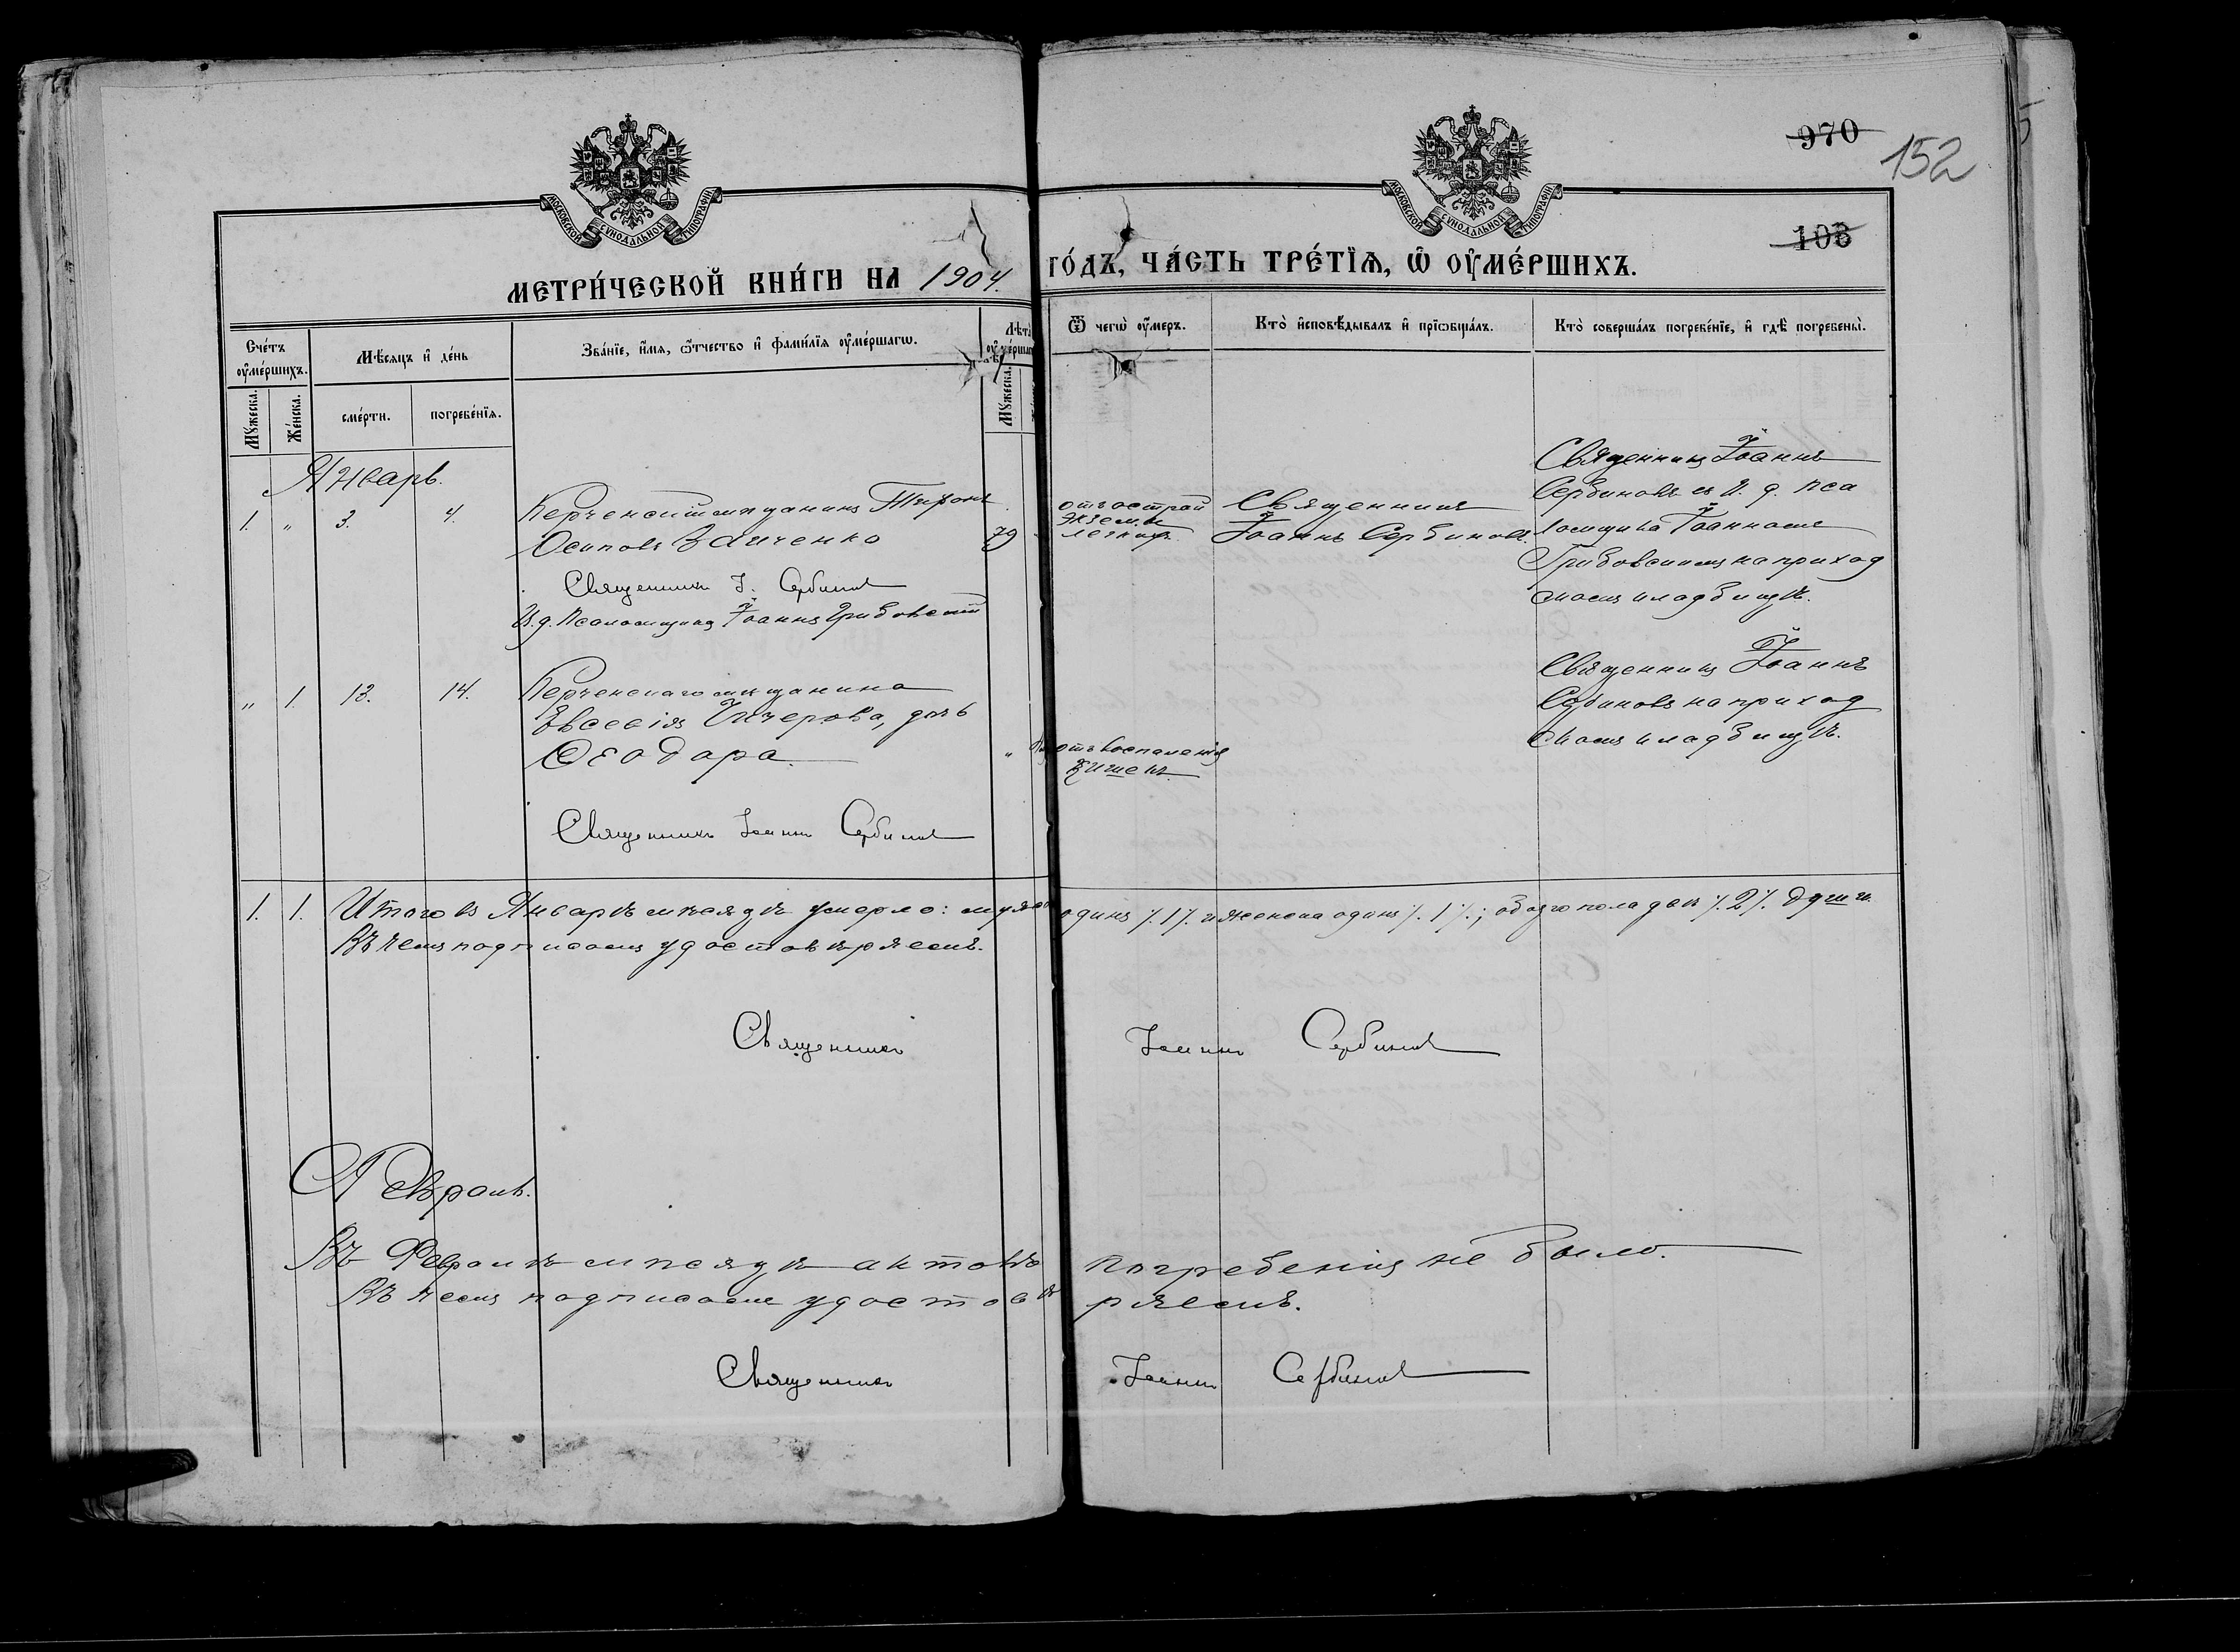 970
152
103
МОСКОВСКОЙ СѴНОДАЛЬНОЙ ТИПОГРАФІИ
МОСКОВСКОЙ СѴНОДАЛЬНОЙ ТИПОГРАФІИ
МЕТРИ́ЧЕСКОЙ КНИ́ГИ НА 1904. ГО́ДЪ, ЧА́СТЬ ТРЕ́ТЇѦ, Ѡ ОУ҆МЕ́РШИХЪ.
Сче́тъ оу҆ме́ршихъ.
Мѣ́сѧцъ и҆ де́нь
Зва́нїе, и҆́мѧ, ѻ҆́тчество и҆ фами́лїѧ оу҆ме́ршагѡ.
Лѣта̀ оу҆ме́ршагѡ
Ѿ чегѡ̀ оу҆́меръ.
Кто̀ и҆сповѣ́дывалъ и҆ прїѡбща́лъ.
Кто̀ соверша́лъ погребе́нїе, и҆ гдѣ̀ погребены̀.
Мꙋ́жеска.
Же́нска.
сме́рти.
погребе́нїѧ.
Мꙋ́жеска.
Январь.
1. " 3. 4.
Керченскій мѣщанинъ Тихонъ
Осиповъ Заиченко 79
Священникъ І. Сербиновъ
И. д. Псаломщика Іоаннъ Грибовскій
отъ острой
экземы
легкихъ
Священникъ
Іоаннъ Сербиновъ.
Священникъ Іоаннъ
Сербиновъ съ И. д. Пса
ломщика Іоанномъ
Грибовскимъ на приход
скомъ кладбищѣ.
" 1. 13. 14.
Керченскаго мѣщанина
Евсевія Чичерова, дочь
Ѳеодора "
Священникъ Іоаннъ Сербиновъ
отъ воспаленія
кишекъ.
Священникъ Іоаннъ
Сербиновъ на приход
скомъ кладбищѣ.
1. 1. Итого въ Январѣ мѣсяцѣ умерло: мужеска одинъ /.1/. и женска одинъ /.1/.; обоего пола двѣ /.2/. души.
Въ чемъ подписомъ удостовѣряемъ.
Священникъ Іоаннъ Сербиновъ
Февраль.
Въ Февралѣ мѣсяцѣ актовъ погребенія не было.
Въ чемъ подписомъ удостовѣряемъ.
Священникъ Іоаннъ Сербиновъ